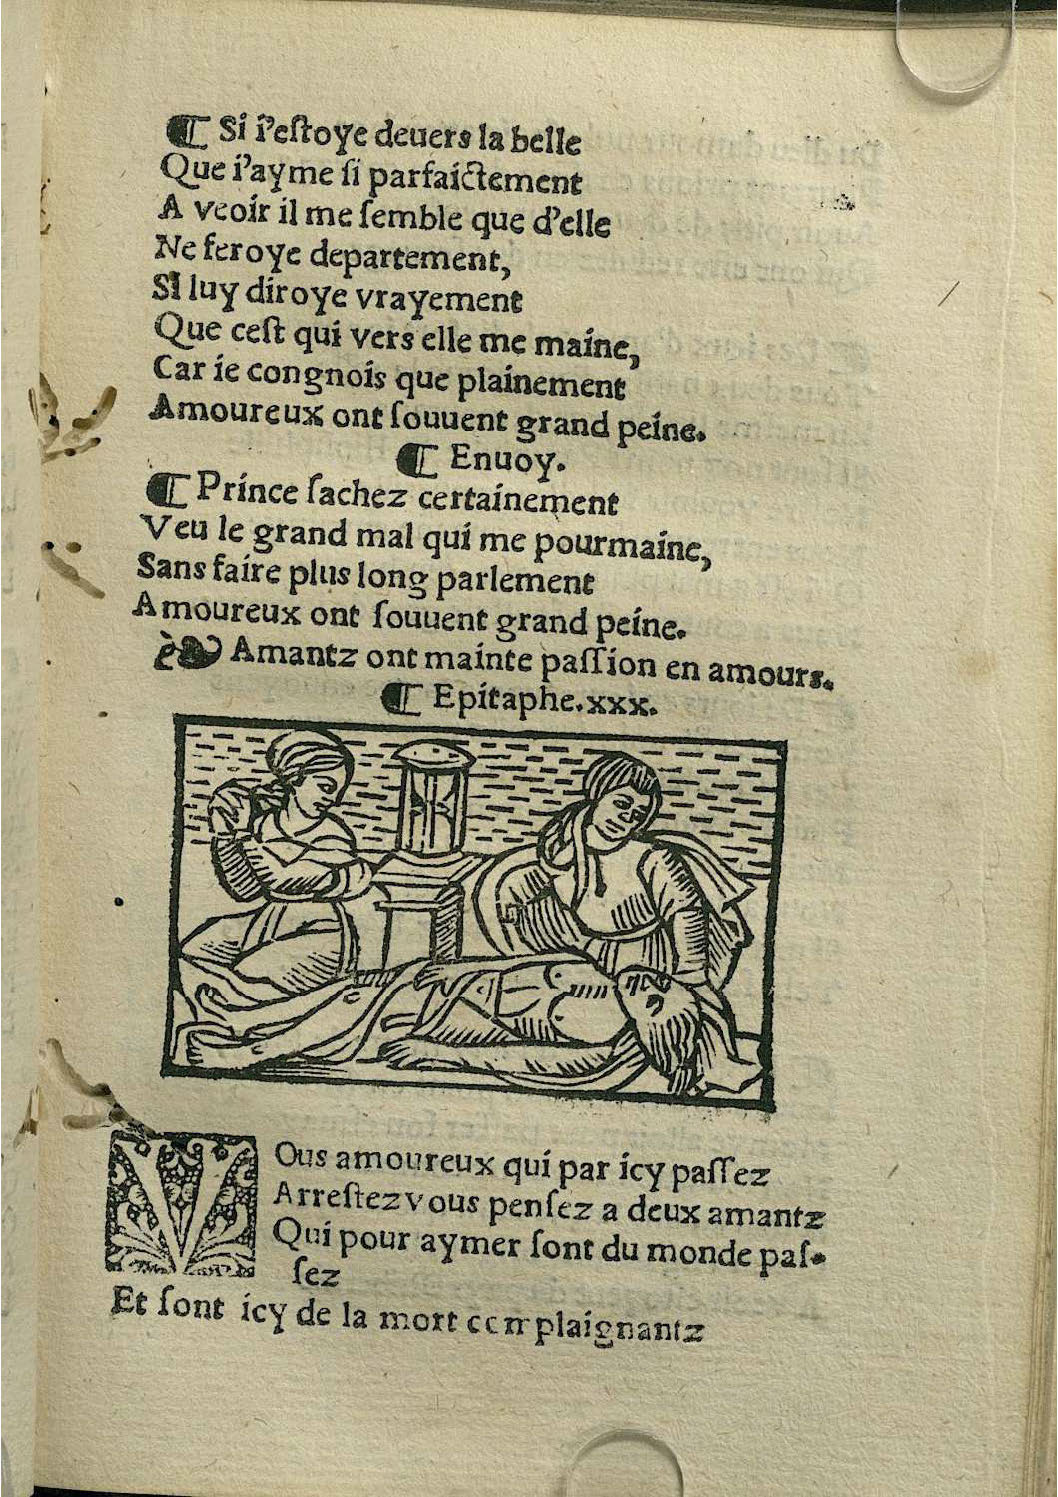 ¶ Si i'eſtoye deuers la belle
Que i'ayme ſi parfaictement
A veoir il me ſemble que d'elle
Ne feroye departement,
Si luy diroye vrayement
Que ceſt qui vers elle me maine,
Car ie congnois que plainement
Amoureux ont ſouuent grand peine.
¶ Enuoy.
¶ Prince ſachez certainement
Veu le grand mal qui me pourmaine,
Sans faire plus long parlement
Amoureux ont ſouuent grand peine.
❧ Amantz ont mainte paſſion en amours.
¶ Epitaphe.xxx.
VOus amoureux qui par icy paſſez
Arreſtez vous penſez a deux amantz
Qui pour aymer ſont du monde paſ-
ſez
Et ſont icy de la mort complaignantz